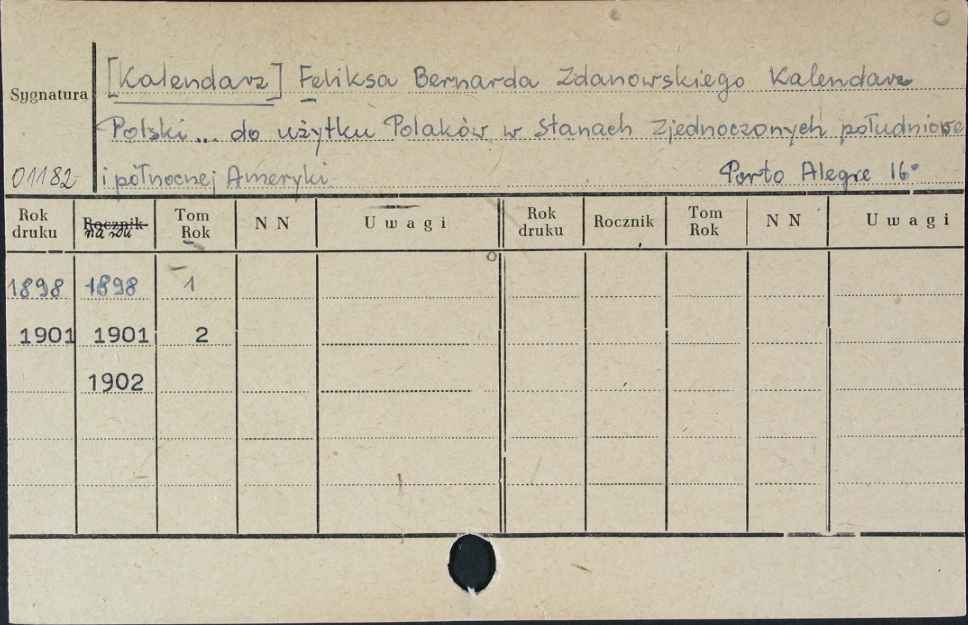 [Kalendarz] Feliksa Bernarda Zdanowskiego Kalendarz
Sygnatura
Polski... do użytku Polaków w Stanach Zjednoczonych południowe
01182 i północnej Ameryki. Porto Alegre 16°
Rok druku Rocznik na rok Tom Rok N N Uwagi Rok druku Rocznik Tom Rok N N Uwagi
1898 1898 1
1901 1901 2
1902